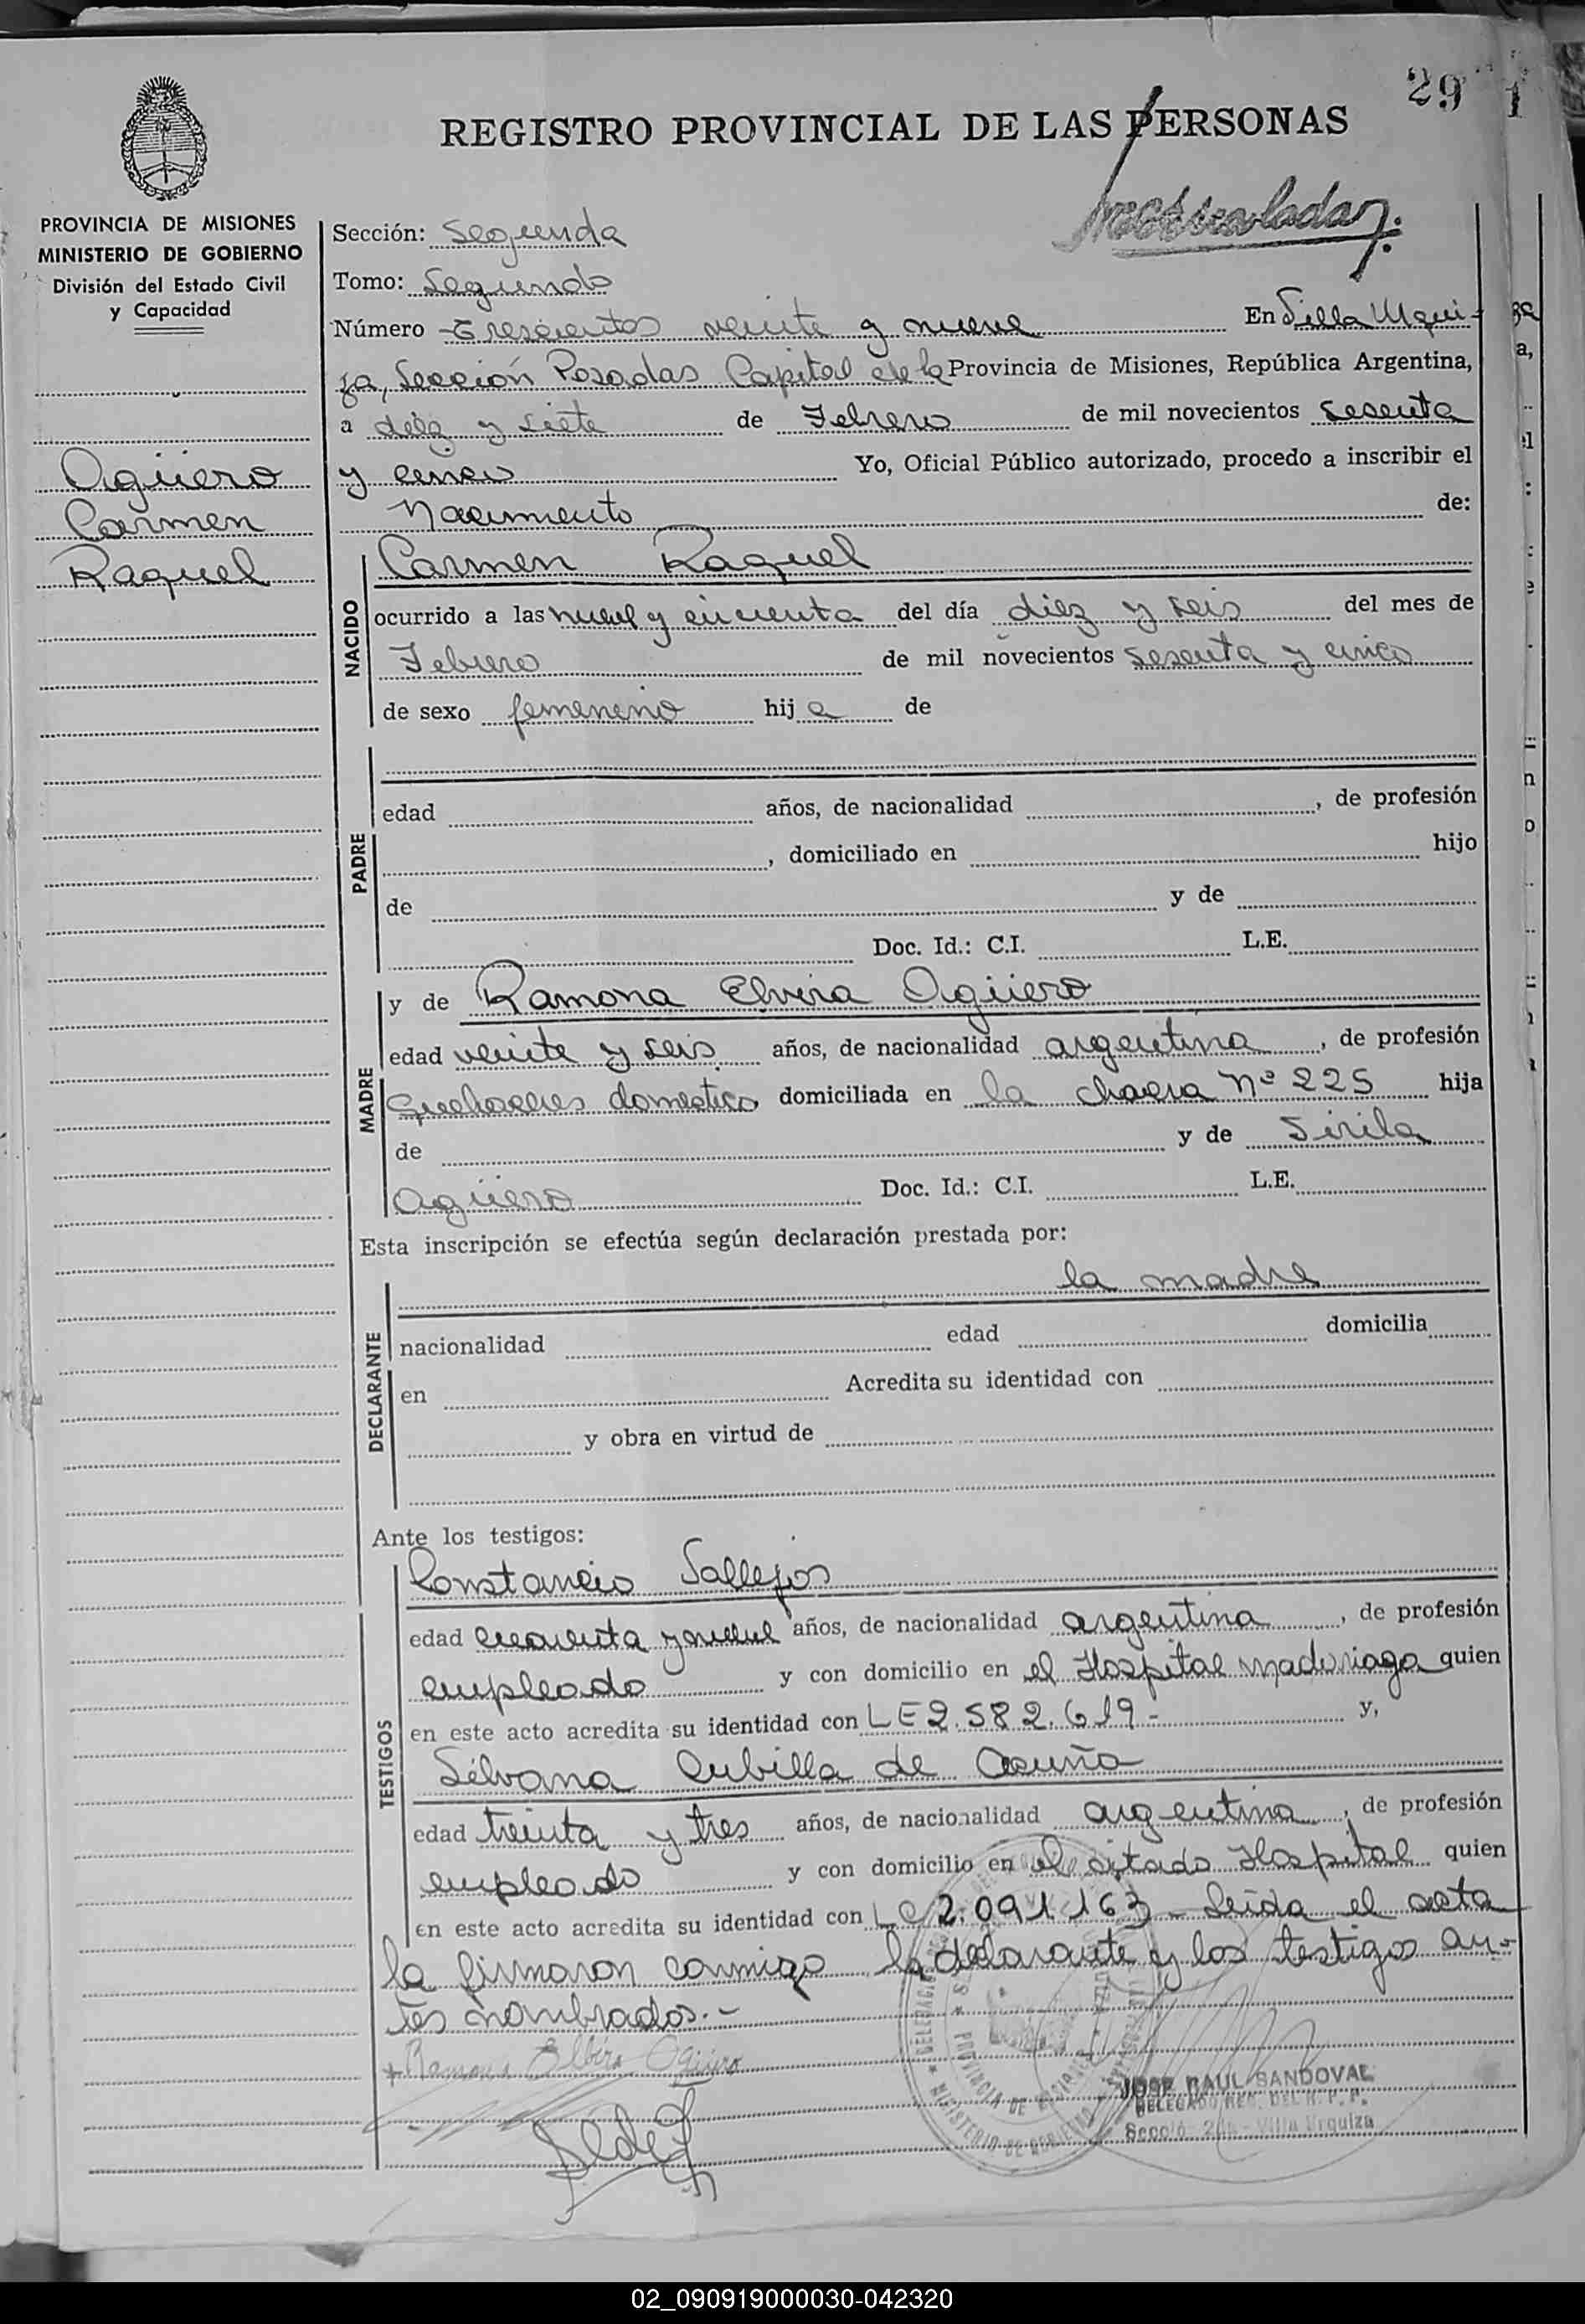 29
REGISTRO PROVINCIAL DE LAS PERSONAS
PROVINCIA DE MISIONES
MINISTERIO DE GOBIERNO
División del Estado Civil
y Capacidad
Agüero
Carmen
Raquel
Sección: Segunda
Tomo: Segundo
Número Trescientos veinte y nueve En Villa Urqui-
za, Sección Posadas Capital de la Provincia de Misiones, República Argentina,
a diez y siete de Febrero de mil novecientos sesenta
y cinco Yo, Oficial Público autorizado, procedo a inscribir el
Nacimiento de:
NACIDO
Carmen Raquel
ocurrido a las nueve y cincuenta del día diez y seis del mes de
Febrero de mil novecientos sesenta y cinco
de sexo femenino hija de
PADRE
edad años, de nacionalidad , de profesión
, domiciliado en hijo
de y de
Doc. Id.: C.I. L.E.
MADRE
y de Ramona Elvira Agüero
edad veinte y seis años, de nacionalidad argentina , de profesión
quehaceres domestico domiciliada en la chacra Nº 225 hija
de y de Sirila
Agüero Doc. Id.: C.I. L.E.
Esta inscripción se efectúa según declaración prestada por:
DECLARANTE
la madre
nacionalidad edad domicilia
en Acredita su identidad con
y obra en virtud de
Ante los testigos:
TESTIGOS
Constancio Vallejos
edad cincuenta y nueve años, de nacionalidad argentina , de profesión
empleado y con domicilio en el Hospital Madariaga quien
en este acto acredita su identidad con LE 2.582.619.- y,
Silvana Cubilla de Acuña
edad treinta y tres años, de nacionalidad argentina , de profesión
empleado y con domicilio en el citado Hospital quien
en este acto acredita su identidad con LC 2.091.163 - Leida el acta
la firmaron conmigo la declarante y los testigos an-
tes nombrados.-
Ramona Elbira Agüero
JOSE RAUL SANDOVAL
DELEGADO REG. DEL R. P. P.
Sección 2da - Villa Urquiza
02_090919000030-042320